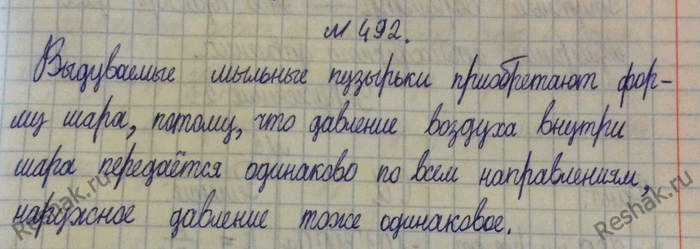 № 492.
Выдуваемые мыльные пузырьки приобретают фор-
му шара, потому, что давление воздуха внутри
шара передаётся одинаково по всем направлениям,
наружное давление тоже одинаковое.
Reshak.ru
Reshak.ru